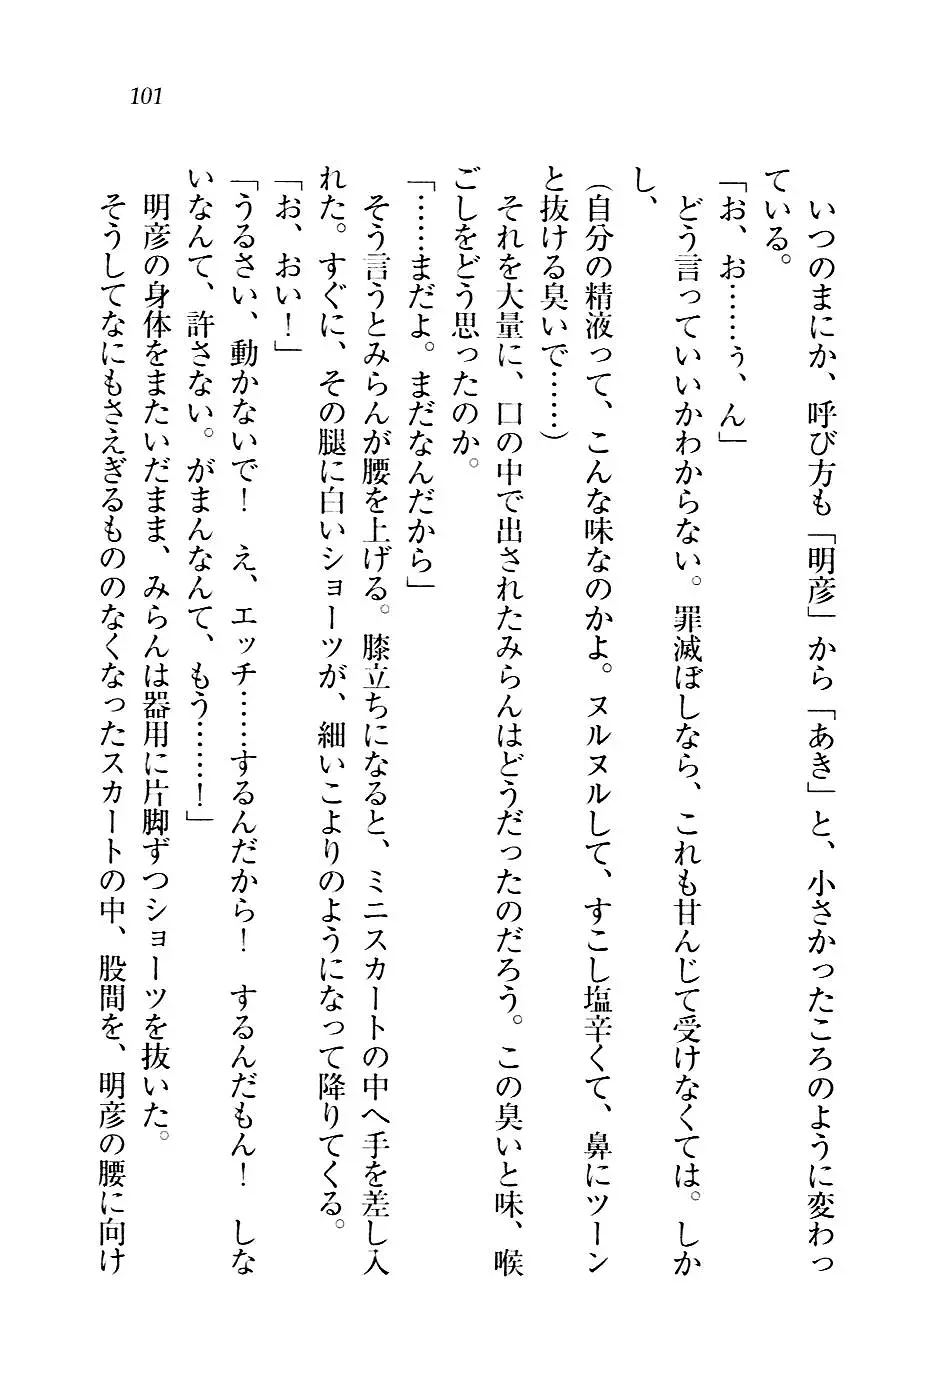 101
いつのまにか、呼び方も「明彦」から「あき」と、小さかったころのように変わっ
ている。
「お、お……ぅ、ん」
どう言っていいかわからない。罪滅ぼしなら、これも甘んじて受けなくては。しか
し、
（自分の精液って、こんな味なのかよ。ヌルヌルして、すこし塩辛くて、鼻にツーン
と抜ける臭いで……）
それを大量に、口の中で出されたみらんはどうだったのだろう。この臭いと味、喉
ごしをどう思ったのか。
「……まだよ。まだなんだから」
そう言うとみらんが腰を上げる。膝立ちになると、ミニスカートの中へ手を差し入
れた。すぐに、その腿に白いショーツが、細いこよりのようになって降りてくる。
「お、おい！」
「うるさい、動かないで！　え、エッチ……するんだから！　するんだもん！　しな
いなんて、許さない。がまんなんて、もう……！」
明彦の身体をまたいだまま、みらんは器用に片脚ずつショーツを抜いた。
そうしてなにもさえぎるもののなくなったスカートの中、股間を、明彦の腰に向け